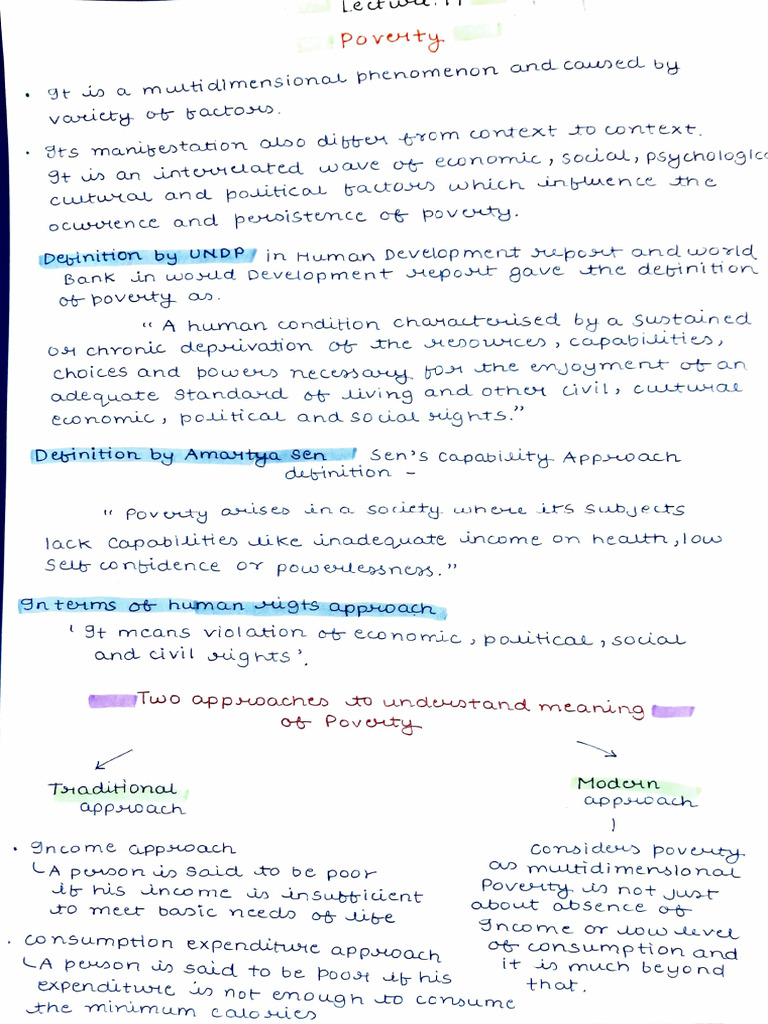 Poverty
• It is a multidimensional phenomenon and caused by
variety of factors.
• Its manifestation also differ from context to context.
It is an interrelated wave of economic, social, psychologic
cultural and political factors which influence the
ocurrence and persistence of poverty.
Definition by UNDP in Human Development report and world
Bank in world Development report gave the definition
of poverty as.
" A human condition characterised by a sustained
or chronic deprivation of the resources, capabilities,
choices and powers necessary for the enjoyment of an
adequate standard of living and other civil, cultural
economic, political and social rights."
Definition by Amartya Sen Sen's Capability Approach
definition -
" Poverty arises in a society where its subjects
lack capabilities like inadequate income on health, low
self confidence or powerlessness."
In terms of human rigts approach
' It means violation of economic, political, social
and civil rights'.
Two approaches to understand meaning
of Poverty
Traditional
approach
• Income approach
A person is said to be poor
if his income is insufficient
to meet basic needs of life
• Consumption expenditure approach
A person is said to be poor if his
expenditure is not enough to consume
the minimum calories
Modern
approach
Considers poverty
as multidimensional
Poverty is not just
about absence of
Income or low level
of consumption and
it is much beyond
that.